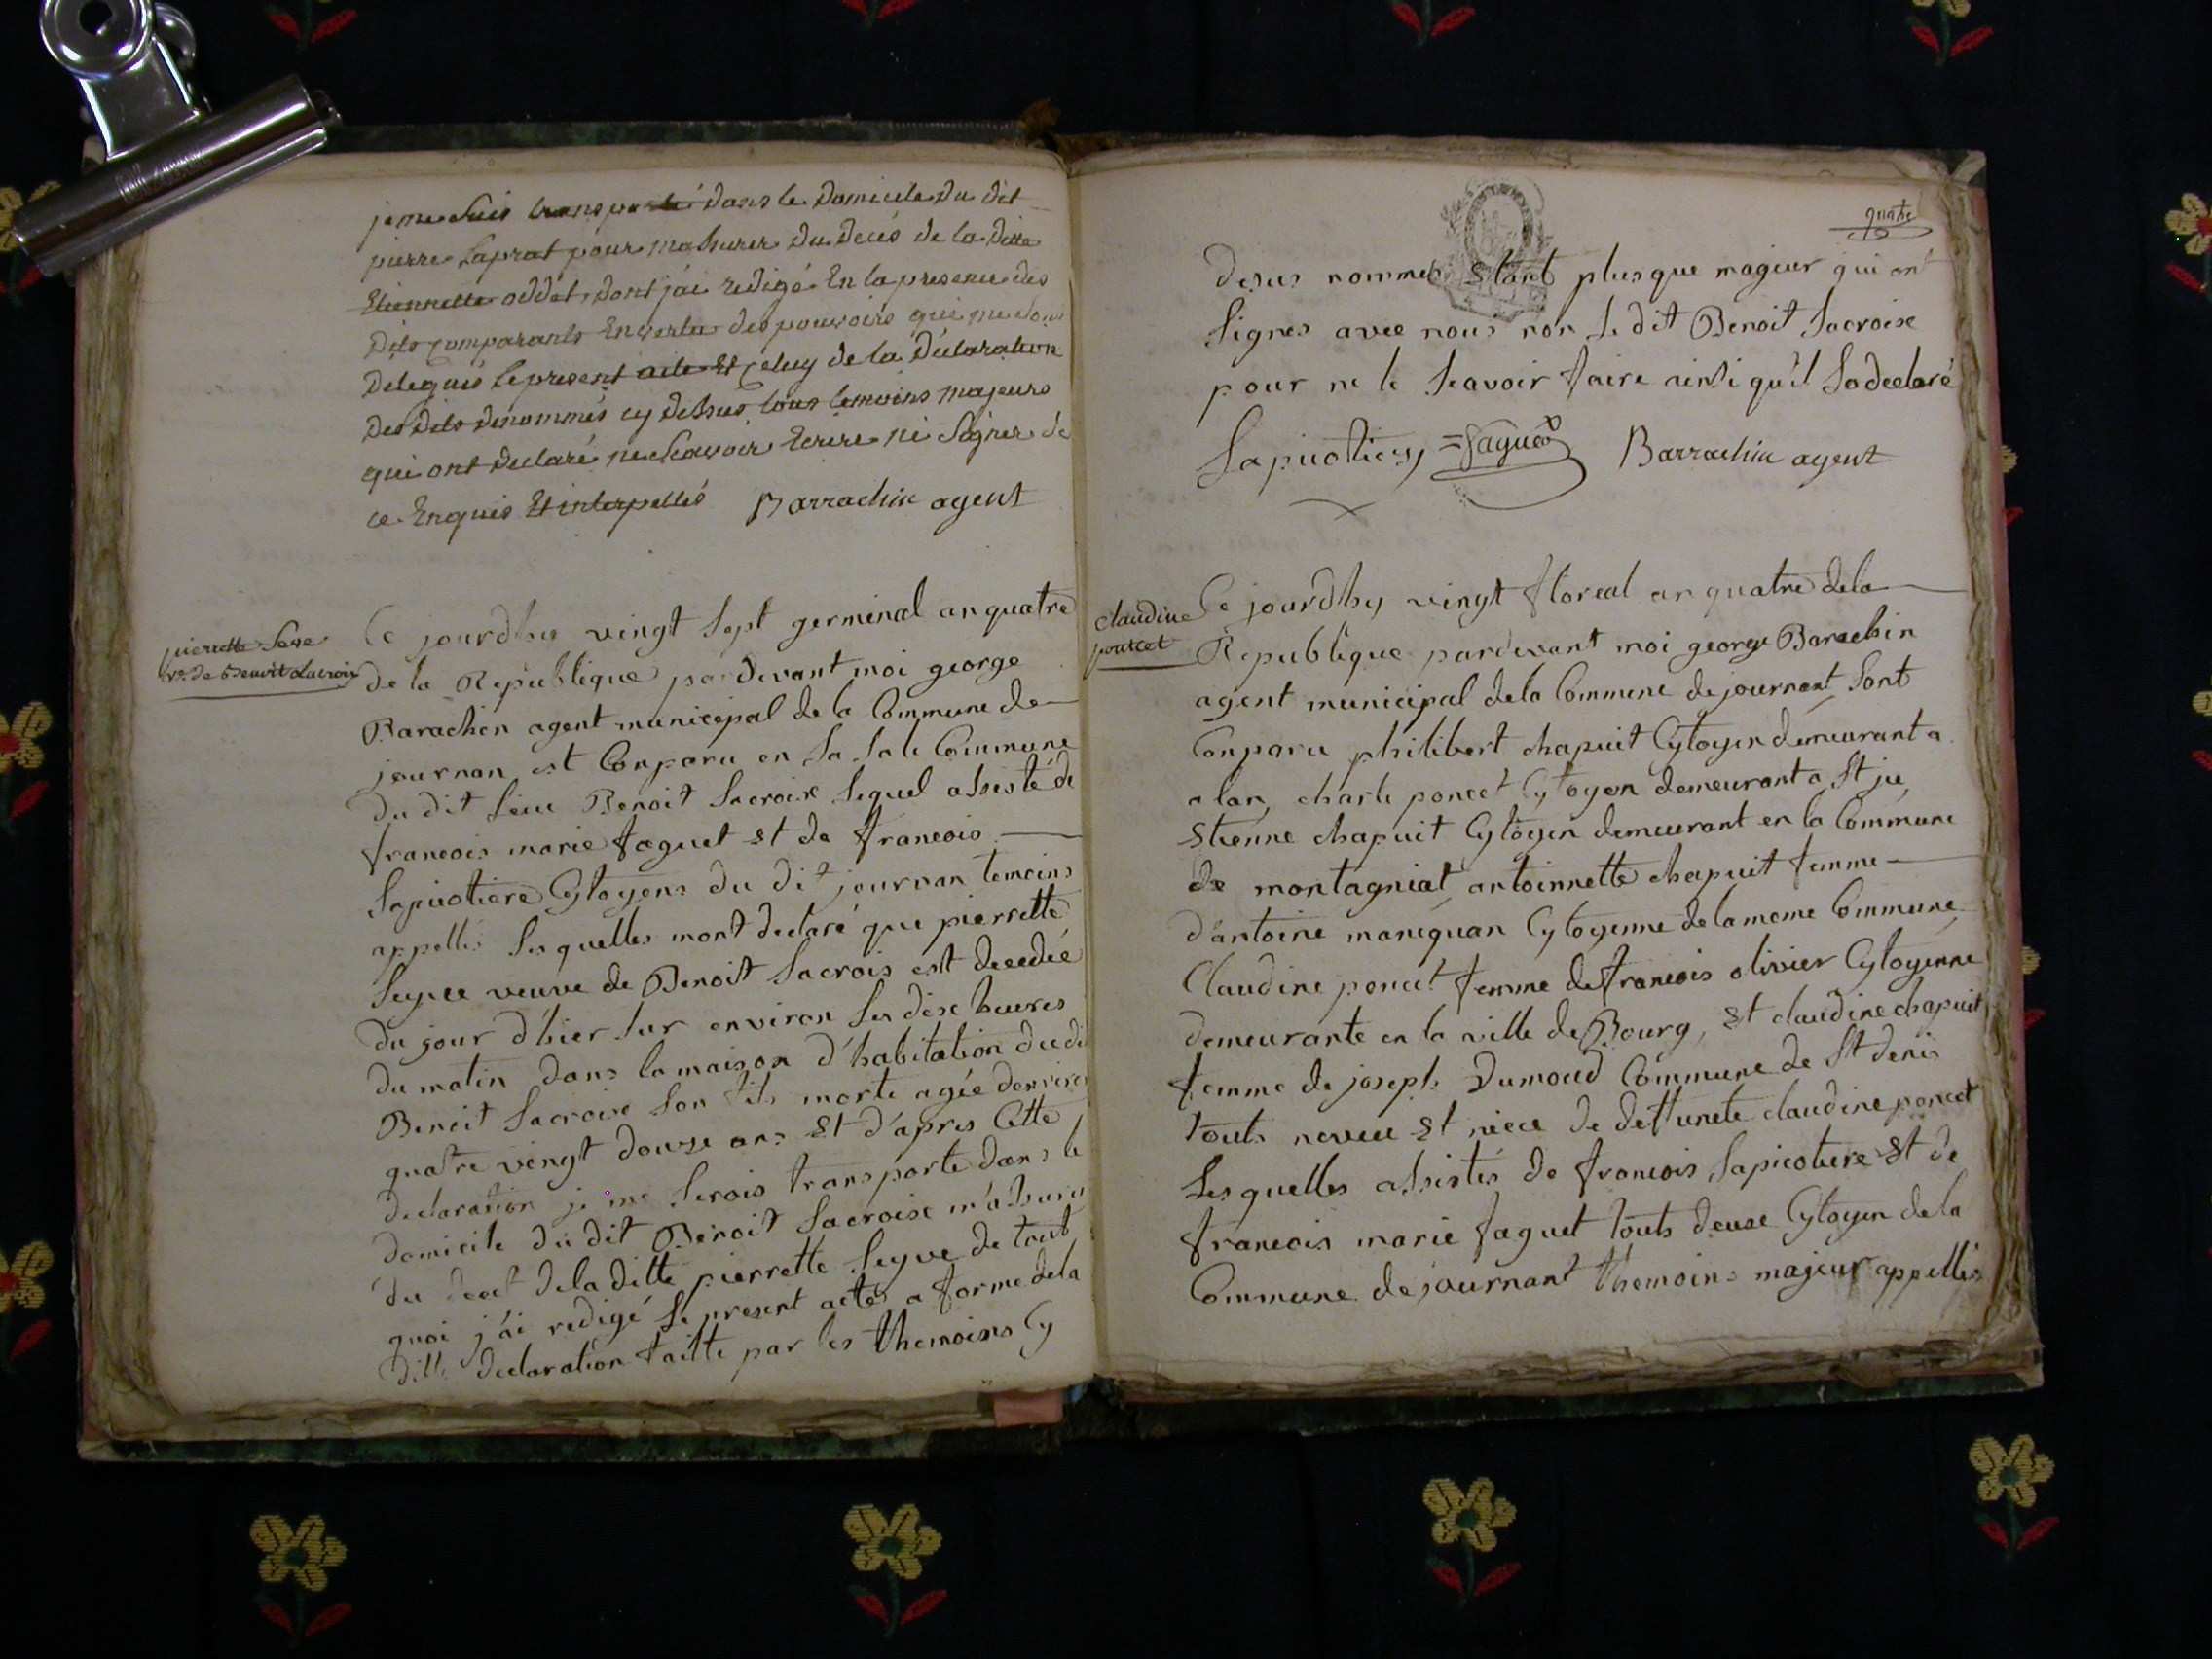 je me suis transporté dans le Domicile du dit
pierre Laprat pour m'assurer du Décès de la ditte
Etiennette oddet, dont j'ai redigé En la presence des
Dits comparants En vertu des pouvoirs qui me sont
Delegués le present acte Et celuy de la Déclaration
des dits denommés cy dessus tous temoins majeurs
qui ont declaré ne scavoir Ecrire ni Signer de
ce Enquis Et interpellés Barrachin agent
pierrette Seyve
vve de Benoit Lacroix
Ce jourdhui vingt sept germinal an quatre
de la Republique par devant moi george
Barachin agent municipal de la Commune de
journan est Conparu en la sale Commune
du dit lieu Benoit lacroix lequel assisté de
francois marie faguet et de francois
lapicotiere Cytoyens du dit journan temoins
appellés lesquelles m'ont declaré que pierrette
seyve veuve de Benoit lacrois est decedée
du jour d'hier sur environ les dixe heures
du matin dans la maison d'habitation du di
Benoit lacroix son fils morte agée denviron
quatre vingt douze ans et d'apres Cette
declaration je me serois transporté dans le
domicile du dit Benoit lacroix m'assuré
du decet de la ditte pierrette seyve de tout
quoi j'ai redigé le present actes a forme dela
ditte declaration faitte par les themoins Cy
quatre
desus nommés etant plus que mageur qui ont
signes avec nous non le dit Benoit lacroix
pour ne le scavoir faire ainsi qu'il la declaré
Lapicotiere =faguet Barrachin agent
claudine
poncet
Ce jourdhy vingt floreal an quatre dela
Republique pardevant moi george Barachin
agent municipal dela Commune de journant sont
Conparu philibert chapuit Cytoyen demeurant a
alan, charle poncet Cytoyen demeurant a St ju
etienne chapuit Cytoyen demeurant en la Commune
de montagniat antoinette chapuit femme
d'antoine maréquan Cytoyenne de la meme Commune
Claudine poncet femme de francois olivier Cytoyenne
demeurante en la ville de Bourg, et claudine chapuit
femme de joseph Dumoud Commune de St denis
touts neveu et niece de deffunete claudine poncet
Lesquelles assistés de francois lapicotiere et de
francois marie faguet touts deuxe Cytoyen dela
Commune de journant themoins majeur appellés